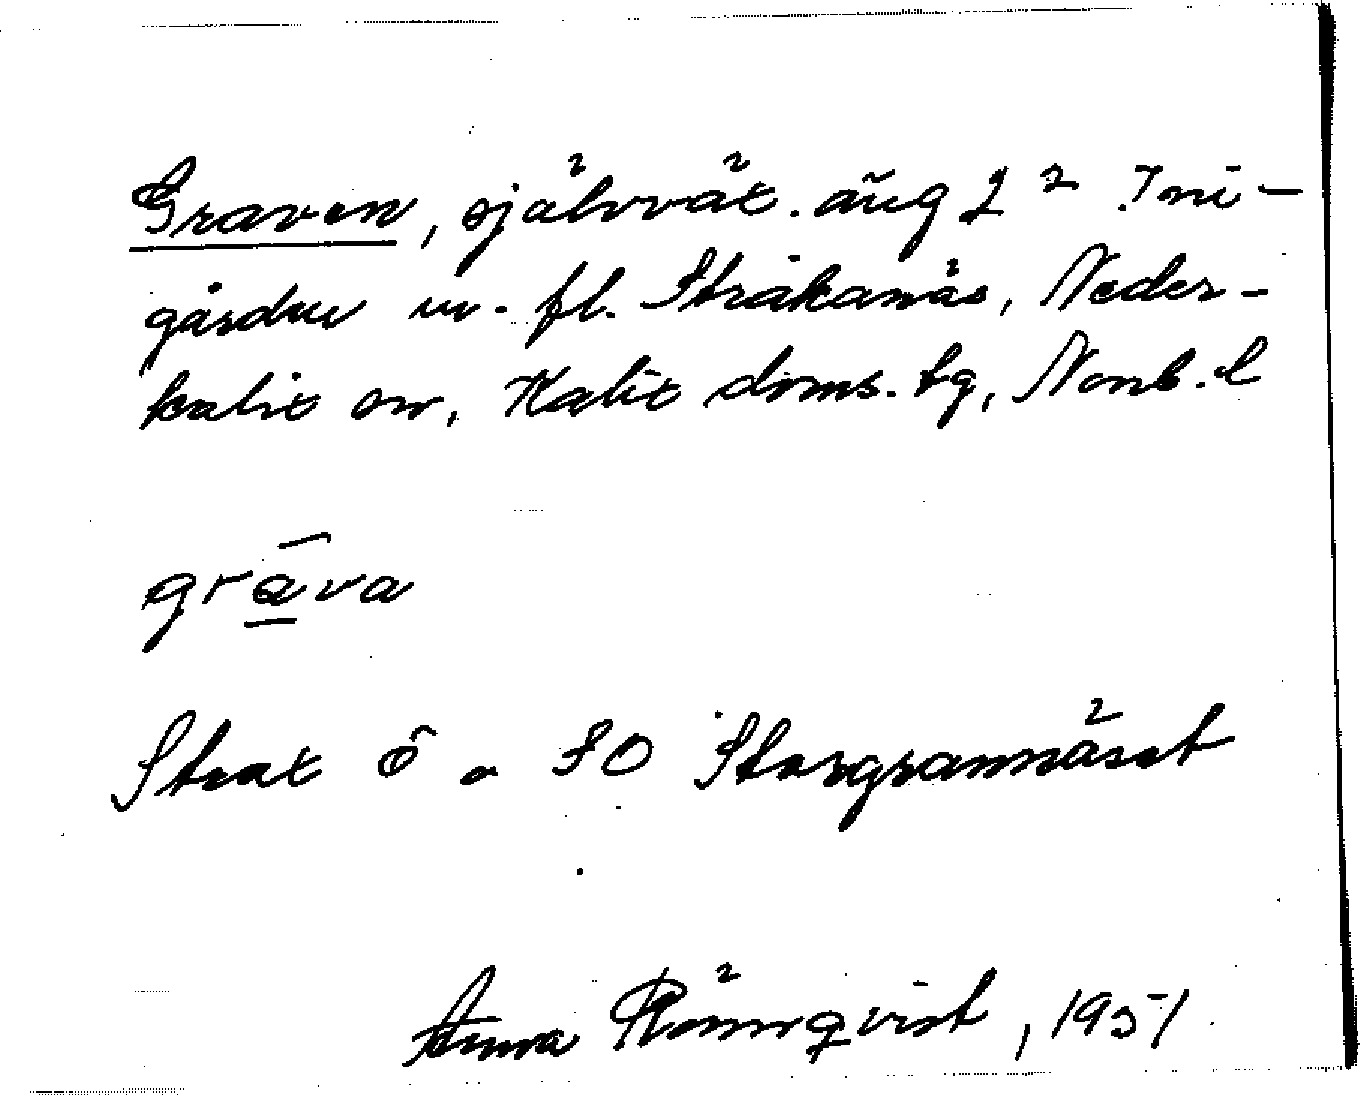 Graven, självvät. äng J 2 Tni-
gården m. fl. Stråkanäs, Neder-
kalix sn, Kalix doms. tg, Norrb. l
gråva
Strax Ö o SO Storgrannäset
Anna Rönnqvist, 1951